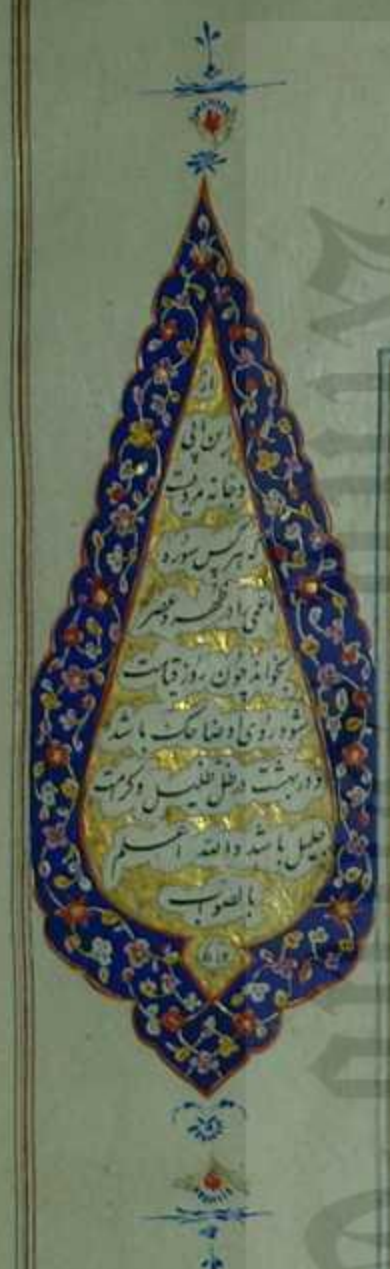 از
ابن ابی
دجانه مرویست
که هر کس سوره
اعمی را در ظهر و عصر
بخواند چون روز قیامت
شود روی او ضاحک باشد
و در بهشت در ظل ظلیل و کرمت
جلیل باشد والله اعلم
بالصواب